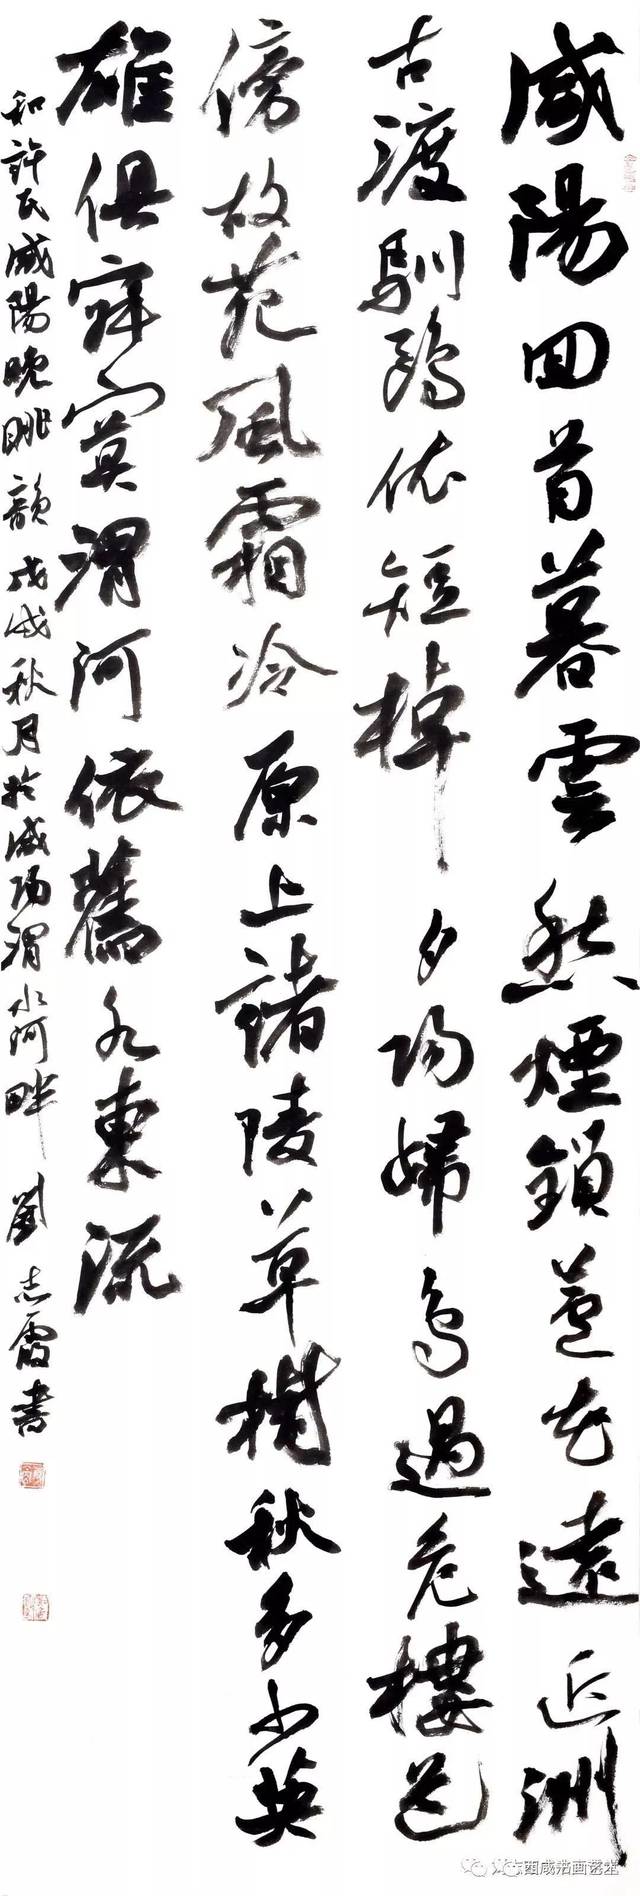 咸陽回首暮雲愁煙鎖蘆花遠近洲
古渡馴鷗依短棹夕陽歸鳥過危樓邑
傍故苑風霜冷原上諸陵草樹秋多少英
雄俱寂寞渭河依舊水東流
和許氏咸陽晚眺韻戊戌秋月於咸陽渭水河畔劉志霞書